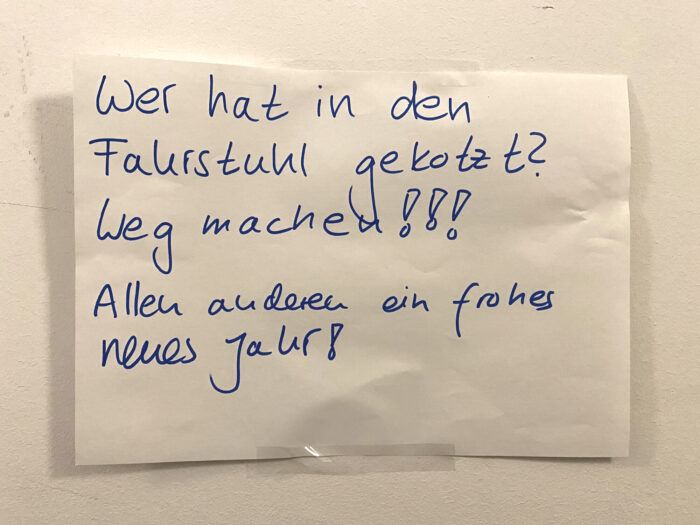 Wer hat in den
Fahrstuhl gekotzt?
Weg machen!!!
Allen anderen ein frohes
neues Jahr!